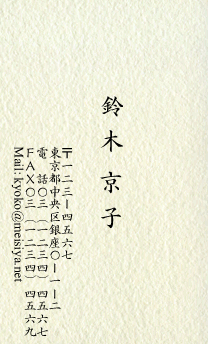 鈴木京子
〒一二三ー四五六七
東京都中央区銀座〇ー一ー二
電話〇三（一二三四）四五六七
ＦＡＸ〇三（一二三四）四五六九
Mail: kyoko@meisiya.net